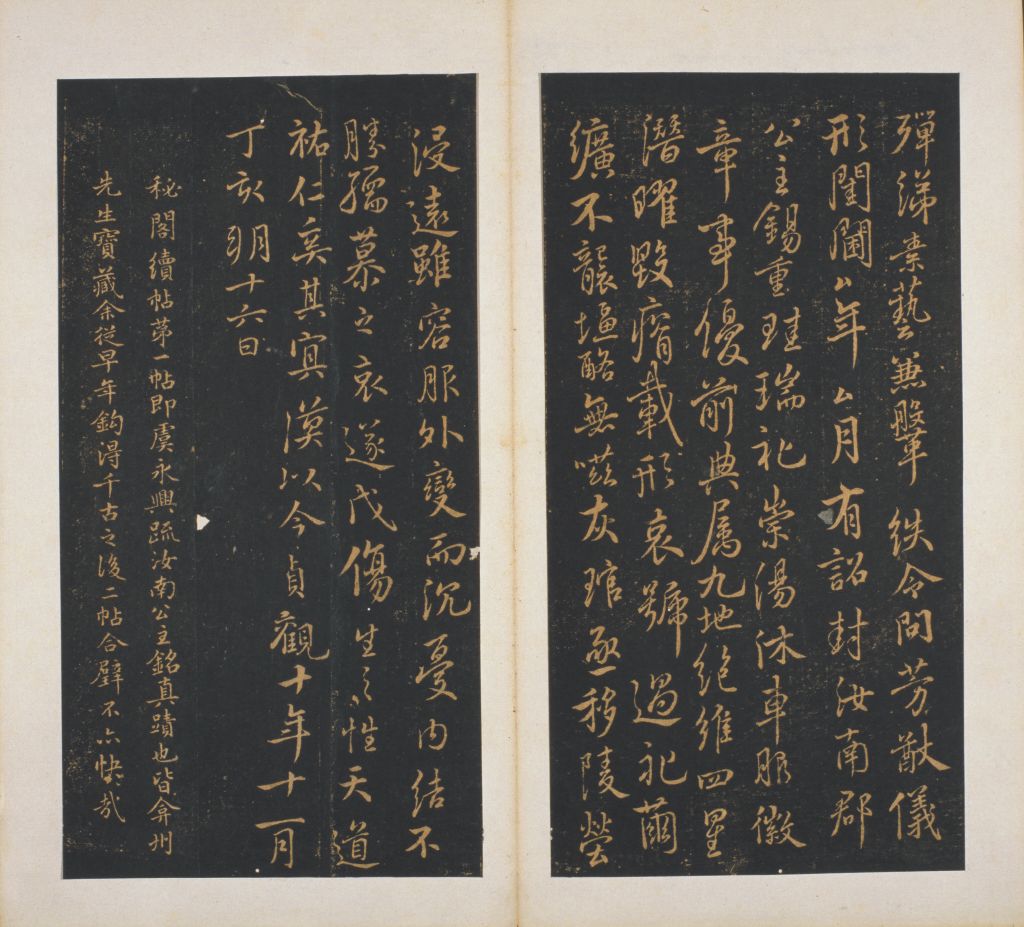 殫綈素藝兼鞶紩令問芳猷儀
形閨閫厶年厶月有詔封汝南郡
公主錫重珪瑞礼崇湯沐車服徽
章事優前典属九地絕維四星
潛曜毀瘠載形哀號過礼繭
纊不襲塩酪無噬灰琯亟移陵塋
浸遠雖容服外變而沉憂内結不
勝孺慕之哀遂成傷生之性天道
祐仁奚其冥漠以今貞觀十年十一月
丁亥朔十六日
秘閣續帖第一帖即虞永興疏汝南公主銘真蹟也皆弇州
先生寶藏余從早年鈎得千古之後二帖合璧不亦快哉